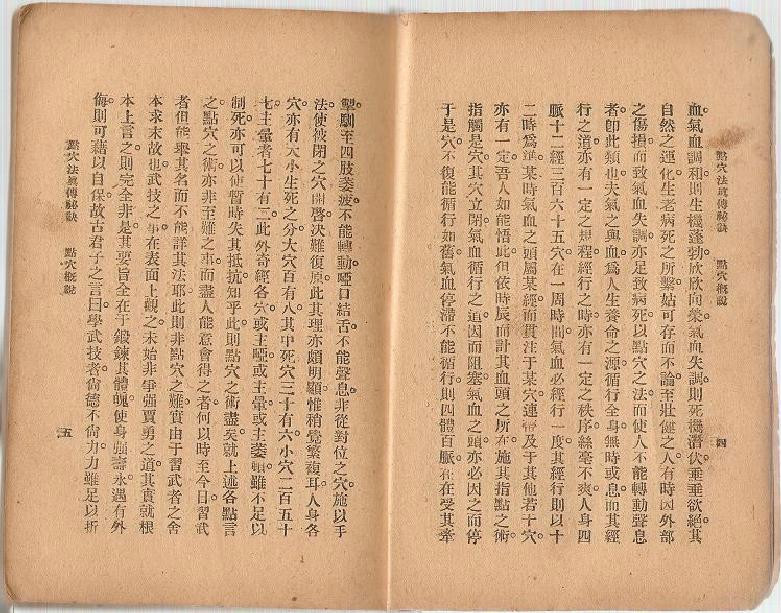 點穴法眞傳秘訣　點穴概說　四
血氣血調和則生機蓬勃欣欣向榮氣血失調則死機潛伏垂垂欲絕其
自然之運化生老病死之所繫姑可存而不論至壯健之人有時因外部
之傷損而致氣血失調亦足致病死以點穴之法而使人不能轉動聲息
者卽此類也夫氣之與血爲人生養命之源循行全身無時或息而其經
行之道亦有一定之規程經行之時亦有一定之秩序絲毫不爽人身四
脈十二經三百六十五穴在一周時間氣血必經行一度其經行則以十
二時爲準某時氣血之頭屬某經而貫注于某穴連帶及于其他若干穴
亦有一定吾人如能悟此但依時辰而計其血頭之所在施其指點之術
指觸是穴其穴立閉氣血循行之道因而阻塞氣血之頭亦必因之而停
于是穴不復能循行如舊氣血停滯不能循行則四體百脈在在受其牽
掣馴至四肢萎疲不能轉動啞口結舌不能聲息非從對位之穴施以手
法使被閉之穴開啓決難復原此其理亦頗明顯惟稍覺繁複耳人身各
穴亦有大小生死之分大穴百有八其中死穴三十有六小穴二百五十
七主暈者七十有二此外奇經各穴或主啞或主暈或主萎頓雖不足以
制死亦可以使暫時失其抵抗知乎此則點穴之術盡矣就上述各點言
之點穴之術亦非至難之事而盡人能意會得之者何以時至今日習武
者但能舉其名而不能詳其法耶此則非點穴之難實由于習武者之舍
本求末故也武技之事在表面上觀之未始非爭强賈勇之道其實就根
本上言之則完全非是其要旨全在于鍛鍊其體魄使身强壽永遇有外
侮則可藉以自保故古君子之言曰學武技者尙德不尙力力雖足以折
點穴法眞傳秘訣　點穴概說　五